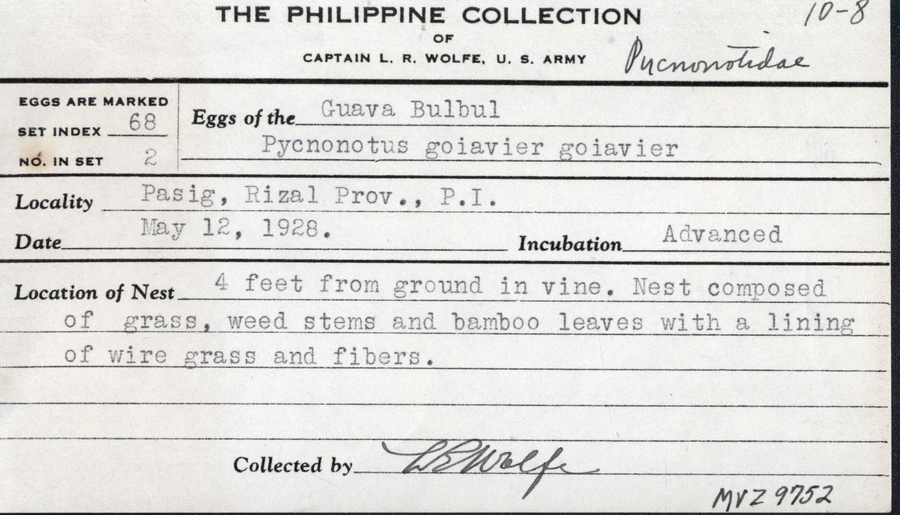 THE PHILIPPINE COLLECTION 10-8
OF
CAPTAIN L. R. WOLFE, U. S. ARMY Pycnonotidae
EGGS ARE MARKED
SET INDEX 68
NO. IN SET 2
Eggs of the Guava Bulbul
Pycnonotus goiavier goiavier
Locality Pasig, Rizal Prov., P.I.
Date May 12, 1928. Incubation Advanced
Location of Nest 4 feet from ground in vine. Nest composed
of grass, weed stems and bamboo leaves with a lining
of wire grass and fibers.
Collected by LRWolfe
MVZ 9752